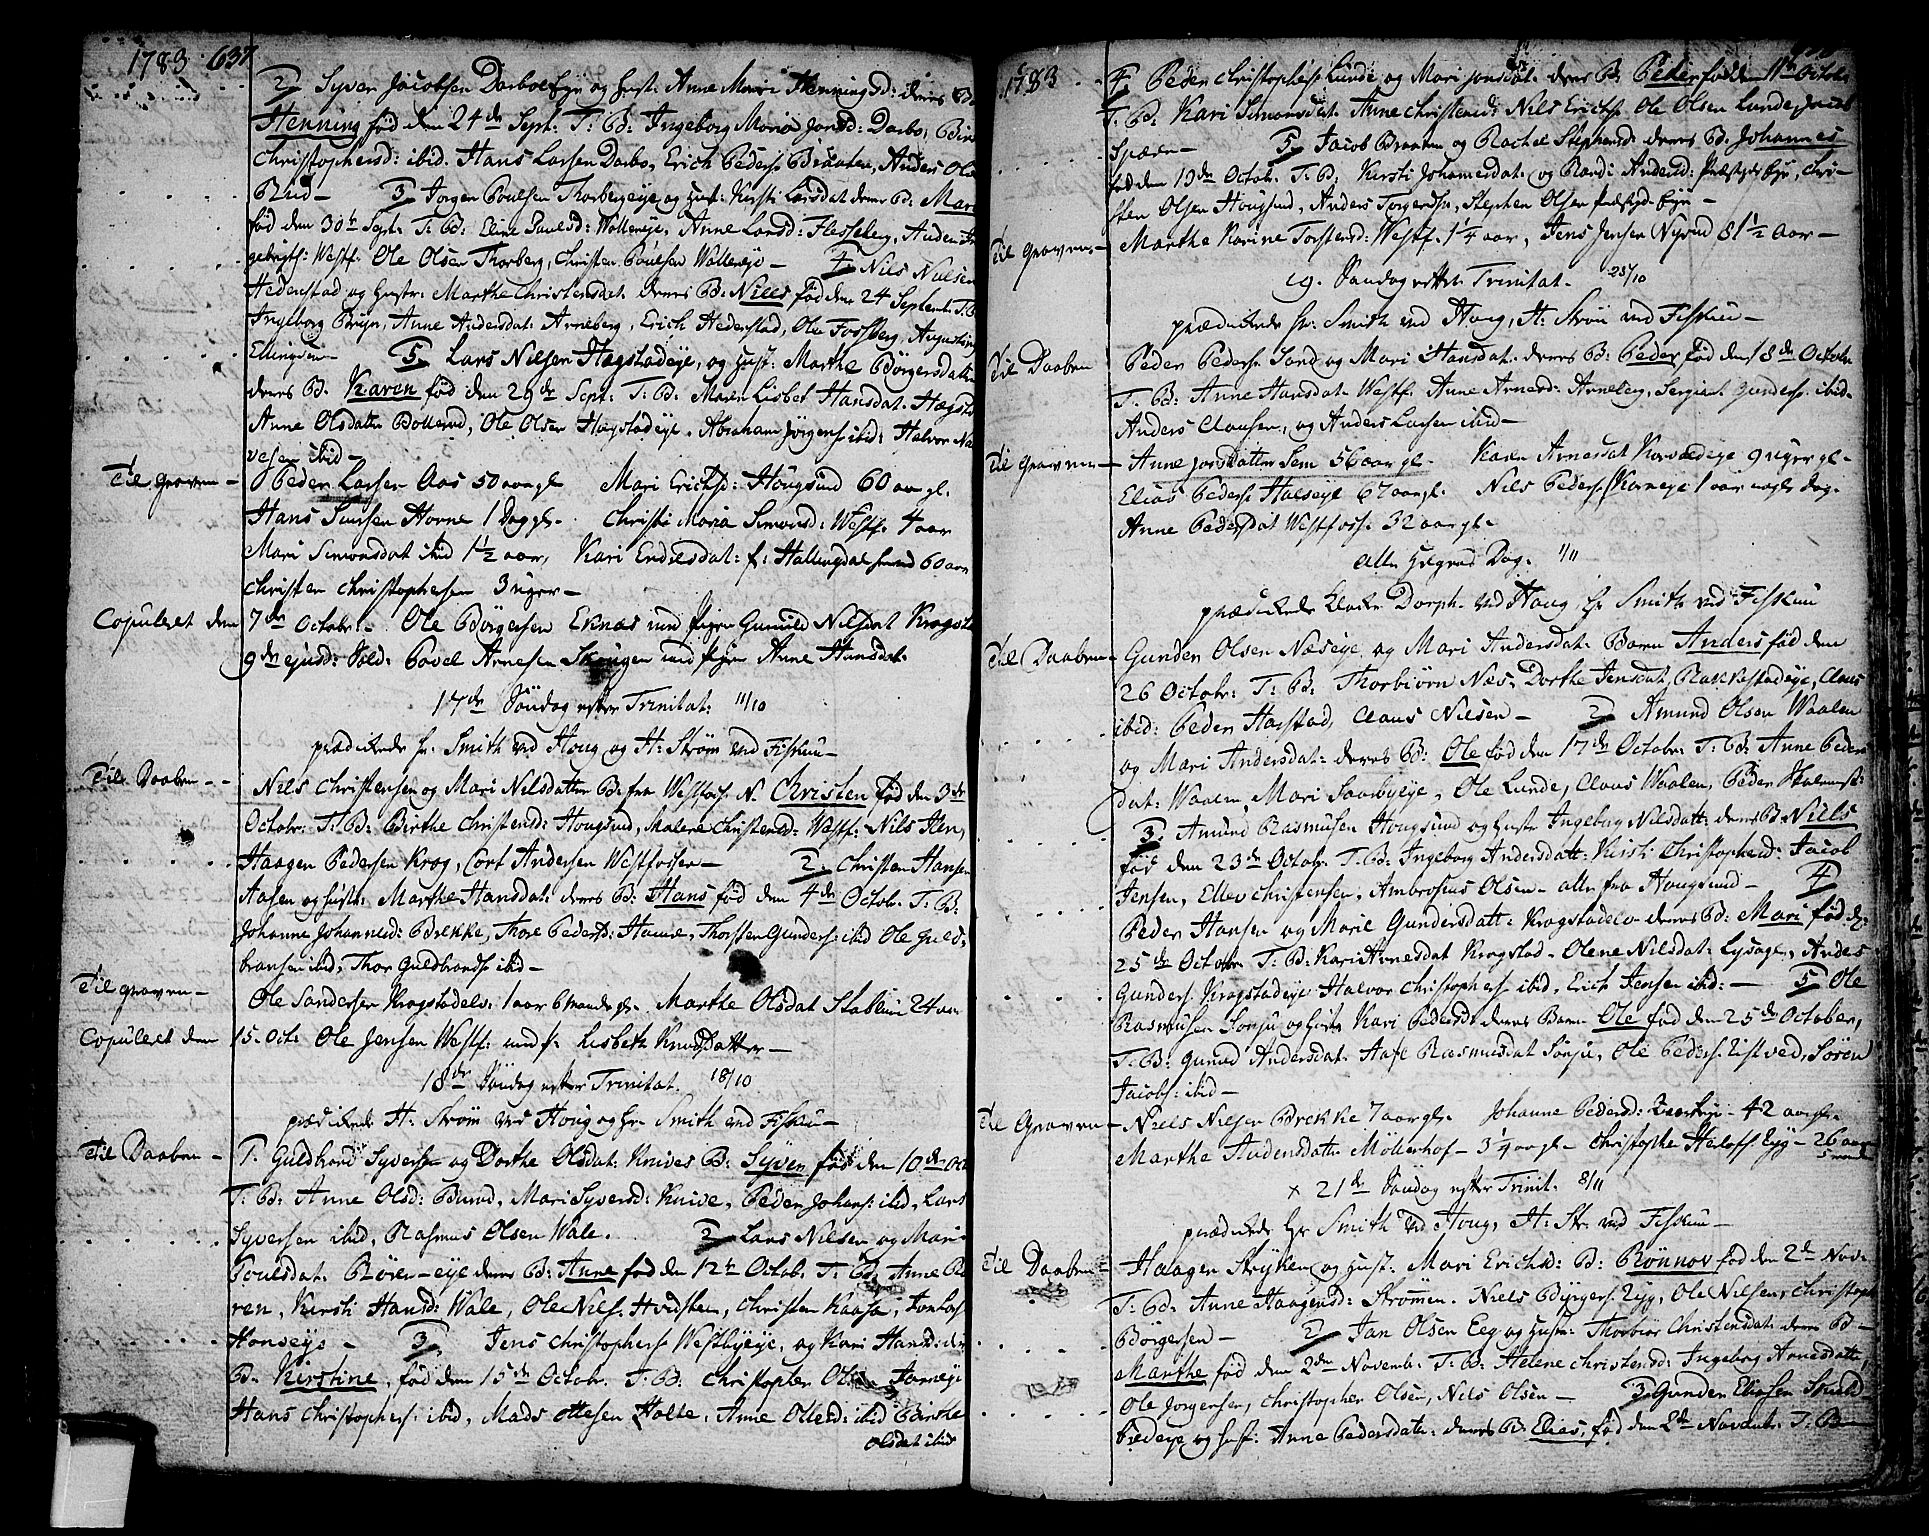 1783 637
2/ Syver Jacobsen Darboe Eye og Hust: Anne Marie Hennings D: deres B:
Henning fød den 24de Sept: T: B: Ingeborg Maria Jonsd: Darbo,
Christophersd: ibid. Hans Larsen Darbo, Erich Peders: Braaten, Anders Ols
Rud — 3/ Jørgen Poulsen Thorbergeye og Hust: Kirsti Larsdat deres B: Mari
fød den 30te Sept: T: B: Eline Paulsd: Wollereye, Anne Larsd: Flesseberg, Anders In
gebrigts: Westf. Ole Olsen Thorberg, Christen Poulsen Wollereye — 4/ Nils Nilsen
Hedenstad og Hustr: Marthe Christensdat: deres B: Niels fød den 24 Septemb: T: B
Ingeborg Bruun, Anne Andersdat: Arneberg, Erich Hedenstad, Ole Fossberg, Augustin
Ellingsen — 5/ Lars Nilsen Hagstadeye, og Hust: Marthe Börgersdatter
deres B: Karen fød den 29de Sept: T: B: Maren Lisbet Hansdat: Hagsta
Anne Olsdatter Bollerud, Ole Olsen Hagstadeye, Abraham Jörgens: ibid: Halvor
vesen ibid —
Til Graven — Peder Larsen Aas 50 aar gl Mari Erichsd: Hougsund 60 aar gl.
Hans Hovne 1 Dag gl. Christi Maria Simonsd: Westf: 4 aar
Mari Simonsdat ibid 1½ aar, Kari Endresdat: f: Hallingdal 60 aar
Christen Christophersen 3 uger —
Copuleret den 7de Octobr: Ole Börgersen Eknæs med Pigen Gunild Nilsdat Krogsta
9de ejusd: Sold: Povel Arnesen Skougen med Pigen Anne Hansdat.
17de Söndag efter Trinitat: 11/10
prædikede Hr. Smith ved Houg og H: Ström ved Fiskum —
Til Daaben — Nils Christensen og Mari Nilsdatter B: fra Westfos: N. Christen fød den 3de
Octobr: T: B: Birthe Christensd: Hougsund, Malene Christensd: Westf: Nils
Haagen Pedersen Krog, Cort Andersen Westfosen — 2/ Christen Hansen
Aasen og Hustr: Marthe Hansdat: deres B: Hans fød den 4de Octob. T: B:
Johanne Johannesd: Brekke, Thore Pedersd: Hamre, Thorsten Gunders: ibid Ole Guld
bransen ibid, Thor Guldbrands: ibid —
Til Graven — Ole Sandersen Krogstadelv: 1 aar 6 Maaneder, Marthe Olsdat Stablum 24 aar
Copuleret den 15. Oct: Ole Jensen Westf: med p: Lisbeth Knudsdatter —
18de Söndag efter Trinitat. 18/10
prædikede H: Ström ved Houg og Hr: Smith ved Fiskum —
Til Daaben — 1. Guldbrand Syversen og Dorthe Olsdat: Knives B: Syver fød den 10de Oct
T: B: Anne Olsd: Burud, Mari Syversd: Knive, Peder Johans: ibid, Lars
Syversen ibid, Rasmus Olsen Wale. 2/ Lars Nilsen og Mari
Poulsdat. Bören-eye deres B: Anne fød den 12te Octob: T: B: Anne Bö
ren, Kirsti Hansd: Wale, Ole Niels: Hvidsteen, Christen Kaasa, Jon Lars
Honseye — 3/ Jens Christophers: Westbyeye, og Kari Hansd: der
B. Kirstine, fød den 15de Octobr. T: B: Christopher Olsen Jarneye
Hans Christophers: ibid, Mads Ottesen Holte, Anne Ottersd: ibid Birthe
Olsdat ibid
1783
4/ Peder Christophers: Lunde og Mari Jonsdat: deres B: Peder fødd 11te Octobr
T: B: Kari Simonsdat: Anne Christensd: Nils Erichs: Ole Olsen Lunde Jacob
Spæren — 5/ Jacob Braaten og Rachel Stephensd: deres B: Johannes
fød den 19de Octob: T: B: Kirsti Johannesdat: og Randi Andersd: Præstegds Eye, Chri-
sten Olsen Hougsund, Anders Torgersen, Stephen Olsen Præstegd: Eye —
Til Graven — Marthe Karine Torstensd: Westf: 1¼ aar, Jens Jensen Nyrud 81½ aar —
19. Söndag efter Trinitat. 25/10
prædikede Hr: Smith ved Houg, H: Ström ved Fiskum —
Til Daaben Peder Peders: Sand og Mari Hansdat: deres B: Peder fød den 18de Octobr
T: B: Anne Hansdat: Westf: Anne Arnesd: Arneberg, Sergiant Gunders: ibid.
Anders Clausen, og Anders Larsen ibid —
Til Graven — Anne Jonsdatter Sem 56 aar gl. Karen Arnesdat Korvædeye 9 uger gl —
Elias Peders: Halseye 67 aar gl. Nils Peders: Korneye 1 aar nogle Dag.
Anne Pedersdat Westfoss: 32 aar gl.
Alle Helgens Dag. 1/11
prædikede Dorph. ved Houg, Hr Smith ved Fiskum
Til Daaben — Gunder Olsen Næseye og Mari Andersdat: Barn Anders fød den
26 Octobr: T: B: Thorbiörn Næs, Dorthe Jensdat, Rakkestadeye, Claus
ibid: Peder Hagstad, Claus Nilsen — 2/ Amund Olsen Waalen
og Mari Andersdat: deres B: Ole fød den 17de Octobr: T: B: Anne Peders
dat: Waalen, Mari Saasbyeye, Ole Lunde, Claus Waalen, Peder
3/ Amund Rasmusen Hougsund og Hustr Ingeborg Nilsdatt: deres B: Niels
fød den 23de Octobr. T: B: Ingeborg Andersdatt: Kirsti Christophersd: Jacob
Jensen, Ellev Christensen, Ambrosius Olsen — alle fra Hougsund — 4/
Peder Hansen og Marie Gundersdatt: Krogstadelv deres B: Mari fød d:
25de Octobr T: B: Kari Arnesdat Krogstad — Olene Nilsdat: Lysager, Anders
Gunders: Krogstadeye Halvor Christophers: ibid, Erich Jensen ibid: — 5/ Ole
Rasmusen Sonju og Hustr Kari Pedersd: deres Barn Ole fød den 25de October,
T: B: Gunnild Andersdat: Aase Rasmusdat Sonju, Ole Peders: Listved, Sören
Jacobs: ibid —
Til Graven — Niels Nilsen Brekke 7 aar gl. Johanne Pedersd: 42 aar gl.
Marthe Andersdatter Möllerhof — 3¼ aar gl — Christophe Herlofs: Eyg — 26 aar
5 maan
x 21de Söndag efter Trinit. 8/11
prædikede Hr Smith ved Houg, H: Str: ved Fiskum —
Til Daaben — Haagen Stryken og Hust: Mari Erichsd: B: Rönnov fød den 2de Nov:
T: B: Anne Haagensd: Strömen. Niels Börgers: Eyg, Ole Nilsen, Christoph
Börgersen — 2/ Jan Olsen Eeg og Hustr: Thorbiör Christensdat: deres B —
Marthe fød den 2den Novemb: T: B: Helene Christensd: Ingeborg Arnesdatter,
Ole Jorgensen, Christopher Olsen, Nils Olsen — 3/ Gunder Eliasen Skuld-
brædeye og Hust: Anne Pedersdatt: deres B: Elias, fød den 2de Novemb: T: B —